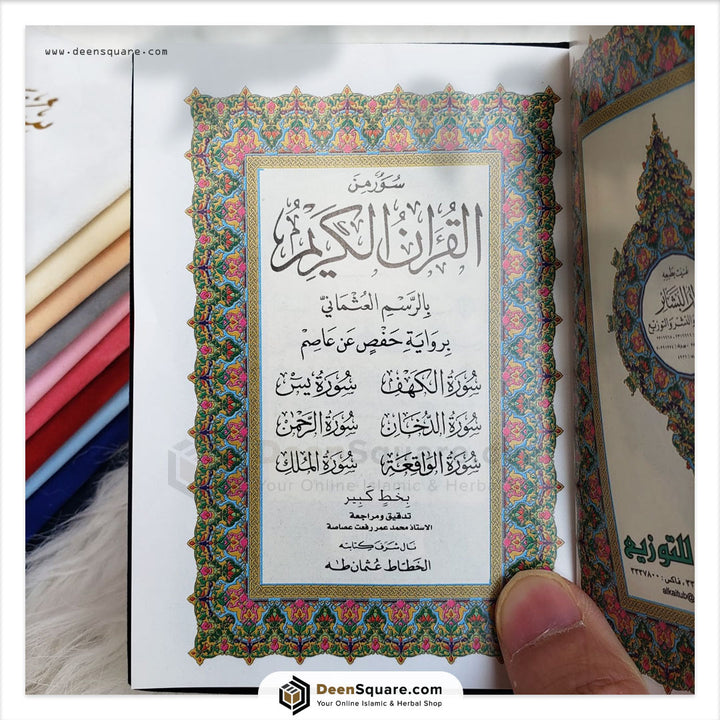 www.deensquare.com
سُوَرٌ مِنَ
القُرْآنُ الكَرِيْمُ
بِالرَّسْمِ العُثْمَانِيّ
بِرِوَايَةِ حَفْصٍ عَن عَاصِم
سُورَةُ الكَهْف سُورَةُ يسٓ
سُورَة الدُّخَان سُورَة الرَّحْمٰن
سُورَة الوَاقِعَة سُورَة المُلْك
DeenSquare
Your Online Islamic & Herbal
بِخَطٍ كَبِير
تدقيق ومراجعة
الاستاذ محمد عمر رفعت عصاصة
نال شرف كتابته
الخطاط عُثمان طه
للتوزيع
فاكس : ٣٣٣٧٨٠٠
alkaitub@
DeenSquare.com
Your Online Islamic & Herbal Shop